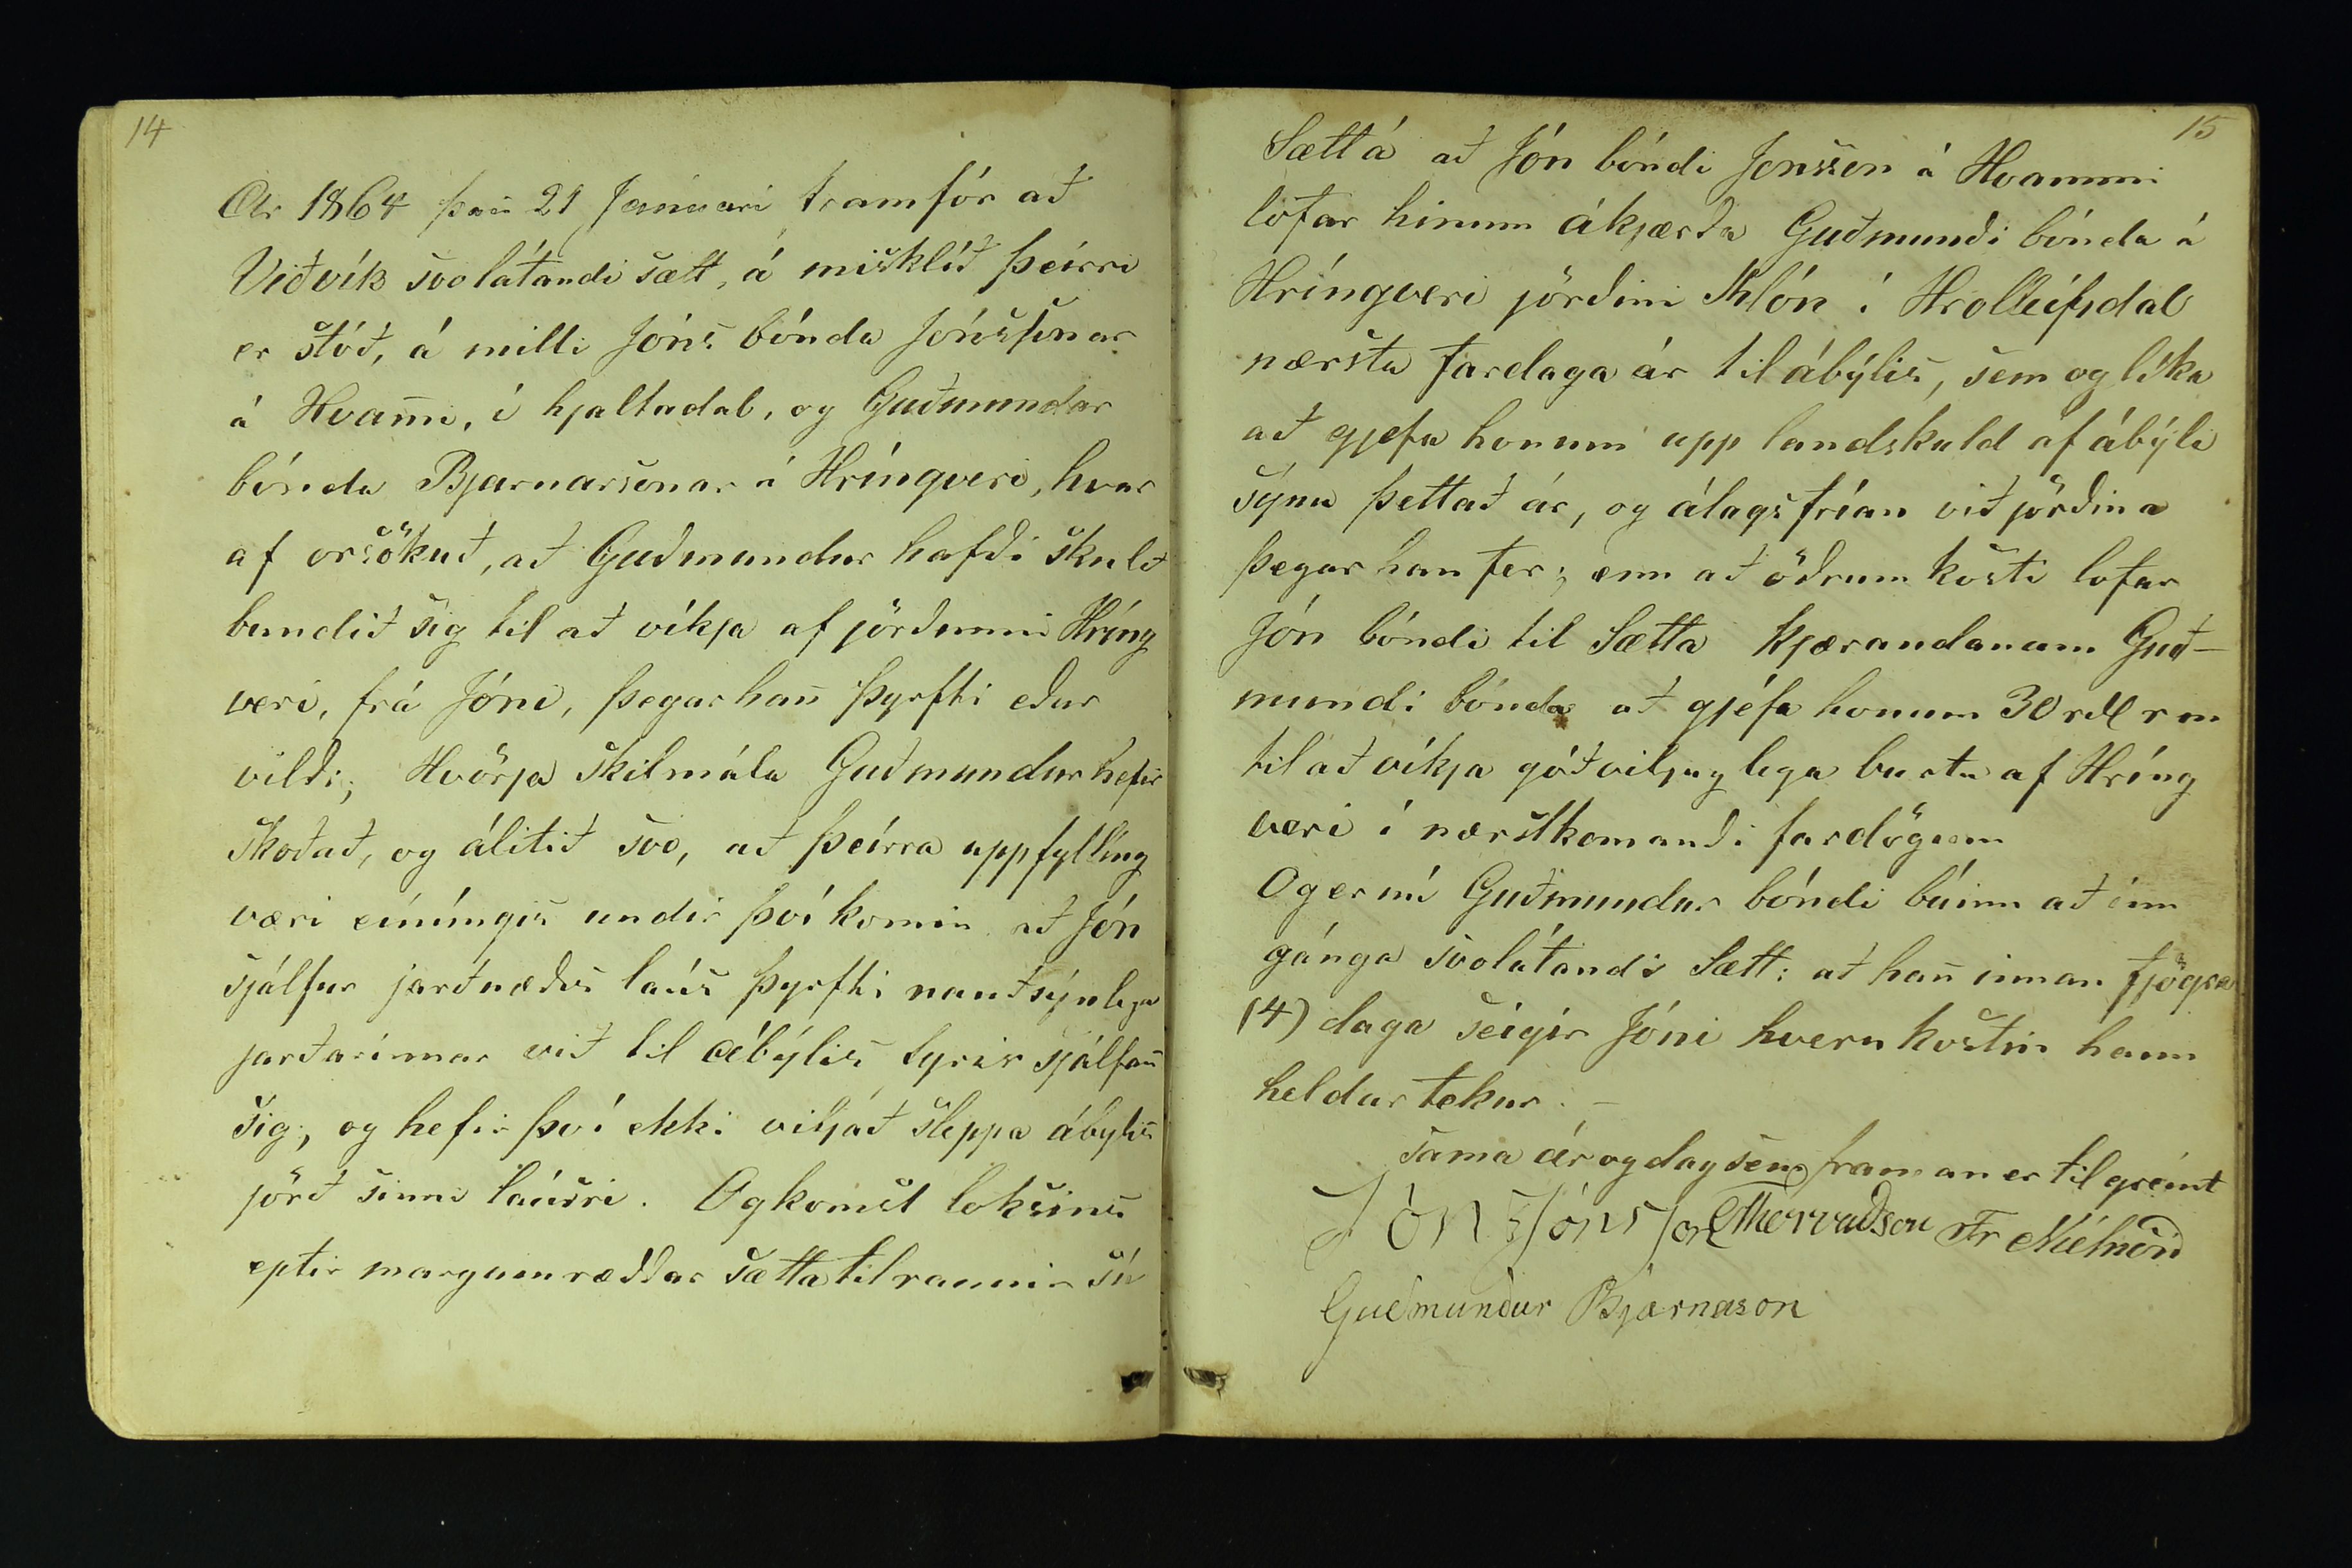 14
Ár 1864 þañ 21 Januari framfór að
Viðvík svolátandi sætt, á misklíð þeírri
er stóð, á milli Jóns bónda Jónssonar
á Hvam̄i, í hjaltadal, og Guðmundar
bónda Bjarnarsonar á Hríngveri, hvar
af orsökuð, að Guðmundur hafði skuld
bundið sig til að víkja af jörðunni Hríng
veri, frá Jóni, þegar hañ þyrfti eður
vildi; Hvörja skilmála Guðmundur hefir
skoðað, og álitið svo, að þeírra uppfyllíng
væri eínúngis undir því komin að Jón
sjálfur jarðnæðis laús þyrfti nauðsýnlega
jarðarinnar við til ábýlis fyrir sjálfañ
sig, og hefir því ekki viljað sleppa ábylis
jörð sinni laúsri. Og komst loksins
eptir margumræddar sætta tilraunir sú
15
Sætt á að Jón bóndi Jonsson á Hvammi
lofar hinum ákjærða Guðmundi bónda á
Hríngveri jörðini Klón í Hrolleífsdal
nærsta fardaga ár til ábýlis, sem og líka
að gjefa honum upp landskuld af ábýli
sýnu þettað ár, og álags frían við jörðina
þegar han fer; enn að öðrum kosti lofar
Jón bóndi til Sætta kjærandanum Guð-
mundi bónda að gjéfa honum 30 rdl r m
til að víkja góðviljuglega burtu af Hríng
veri í nærstkomandi fardögum
Og er nú Guðmundur bóndi búinn að inn
gánga svolátandi Sætt: að hañ innan fjögra
(4) daga seigir Jóni hvern kostin hann
heldur tekur. –
sama ár og dag sem framan er tilgreint
Jón Jónsson EThorvaldsson Fr Níelsson
Guðmundur Bjarnason